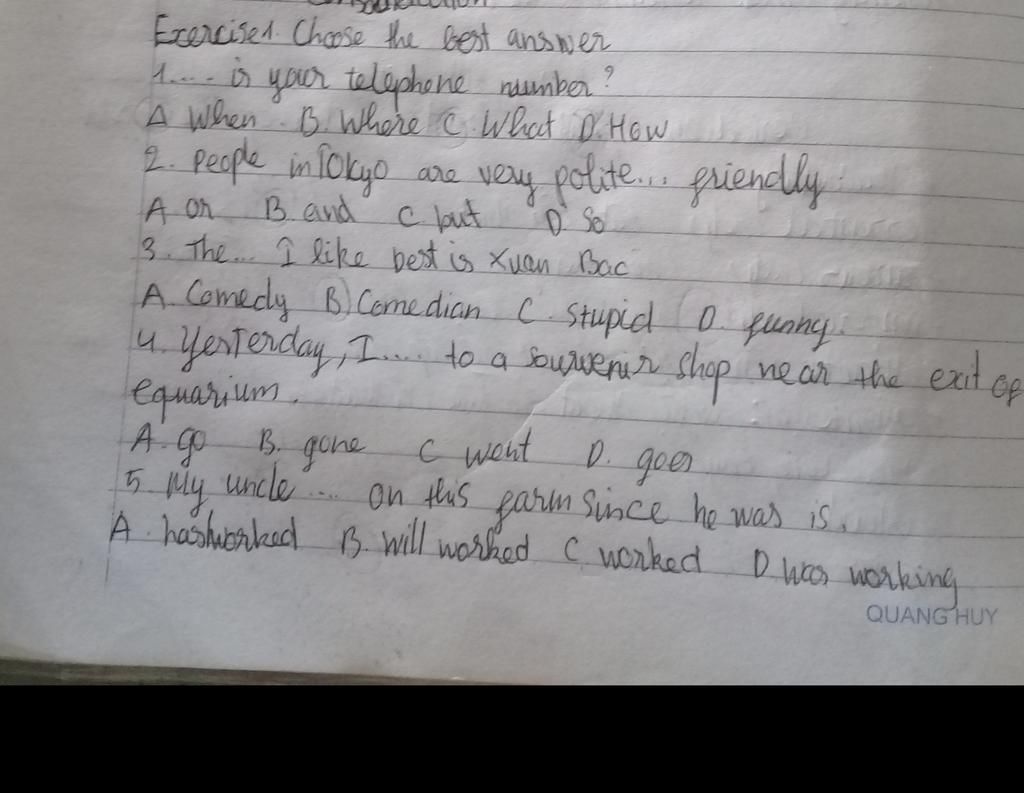 Exercise1. Choose the best answer
1.... is your telephone number?
A When B. Where C. What D. How
2. people in Tokyo are very polite... friendly.
A or B and C but D. So
3. The... I like best is Xuan Bac
A. Comedy B) Comedian C. stupid D. funny.
4. Yesterday, I.... to a souvenir shop near the exit of
equarium.
A. go B. gone C went D. goes
5. My uncle .... on this farm since he was is.
A. hasworked B. will worked C worked D was working
QUANG HUY